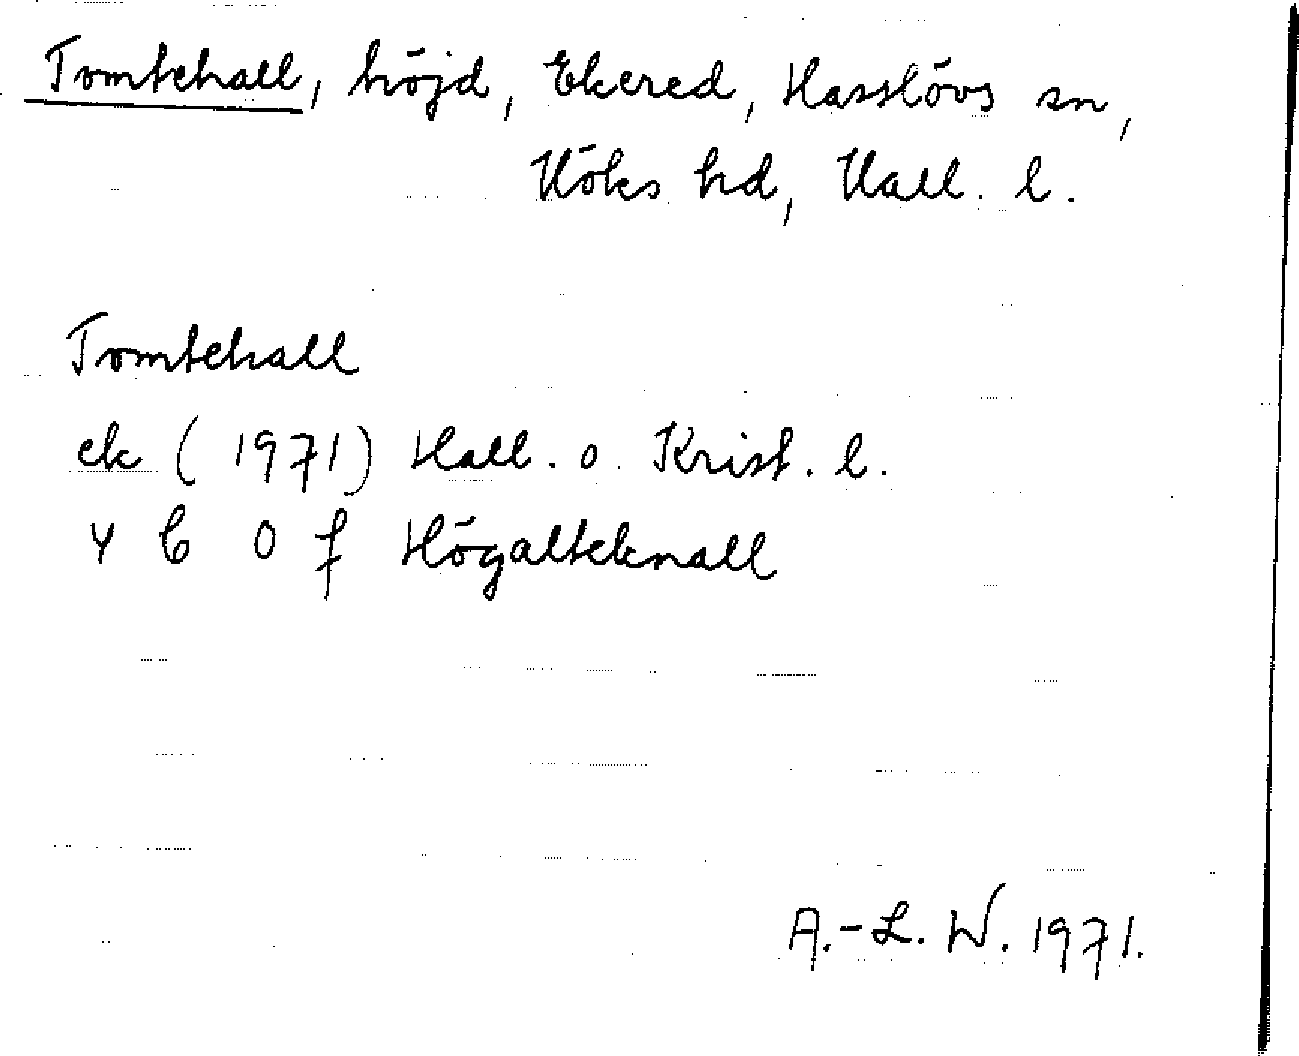 Tomtehall, höjd, Ekered, Hasslövs sn,
Höks hd, Hall. l.
Tomtehall
ek (1971) Hall. o. Krist. l.
4 C 0 f Högalteknall
A.-L. W. 1971.